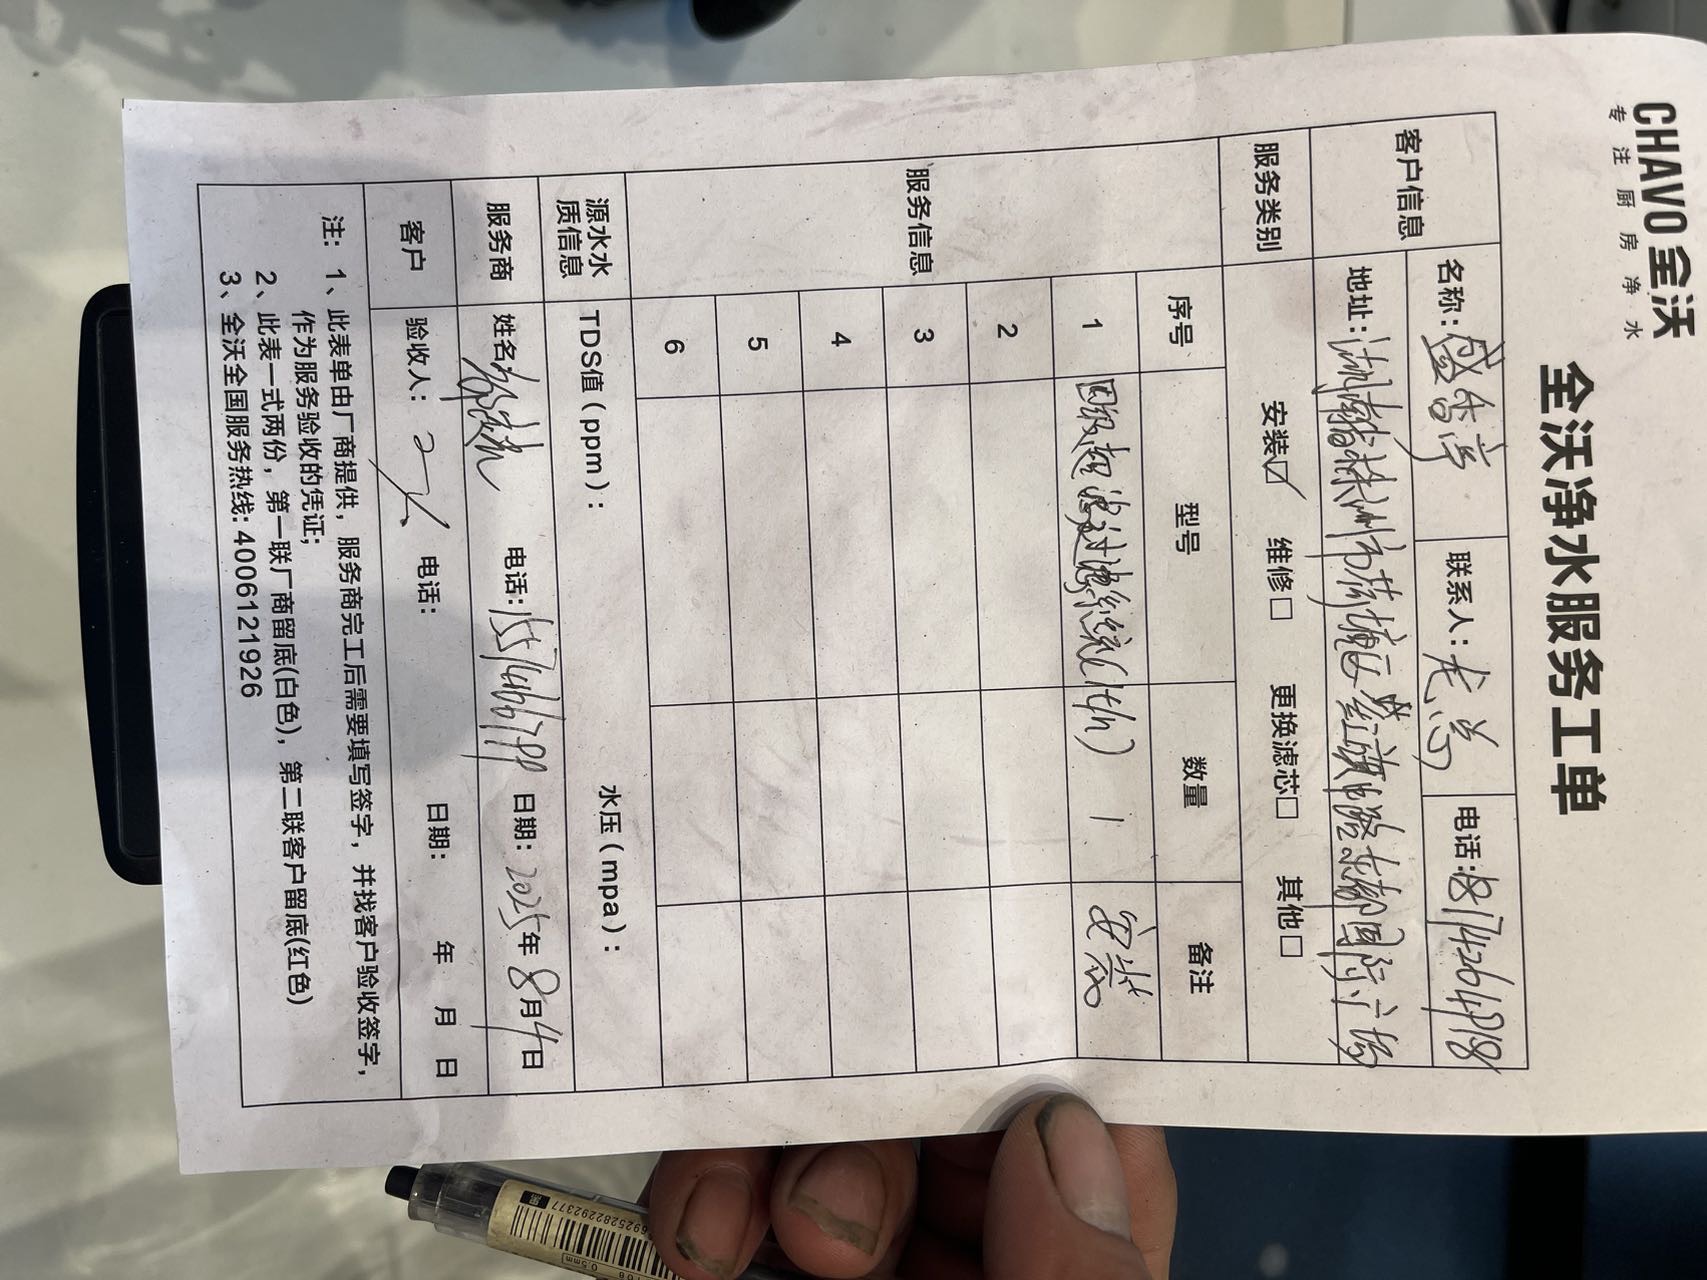 CHAVO 全沃
专注厨房净水
全沃净水服务工单
客户信息 名称：盛香亭 联系人：龙总 电话：18174264918
地址：湖南省株洲市芦淞区 红旗中路东都国际广场
服务类别 安装☑ 维修□ 更换滤芯□ 其他□
服务信息 序号 型号 数量 备注
1 四级超滤过滤系统(1th) 1 安装
2
3
4
5
6
源水水质信息 TDS值（ppm）： 水压（mpa）：
服务商 姓名： 电话：1557466799 日期：2025年8月4日
客户 验收人： 电话： 日期： 年 月 日
注：1、此表单由厂商提供，服务商完工后需要填写签字，并找客户验收签字，
作为服务验收的凭证；
2、此表一式两份，第一联厂商留底(白色)，第二联客户留底(红色)
3、全沃全国服务热线：4006121926
6925282292377
0.5mm